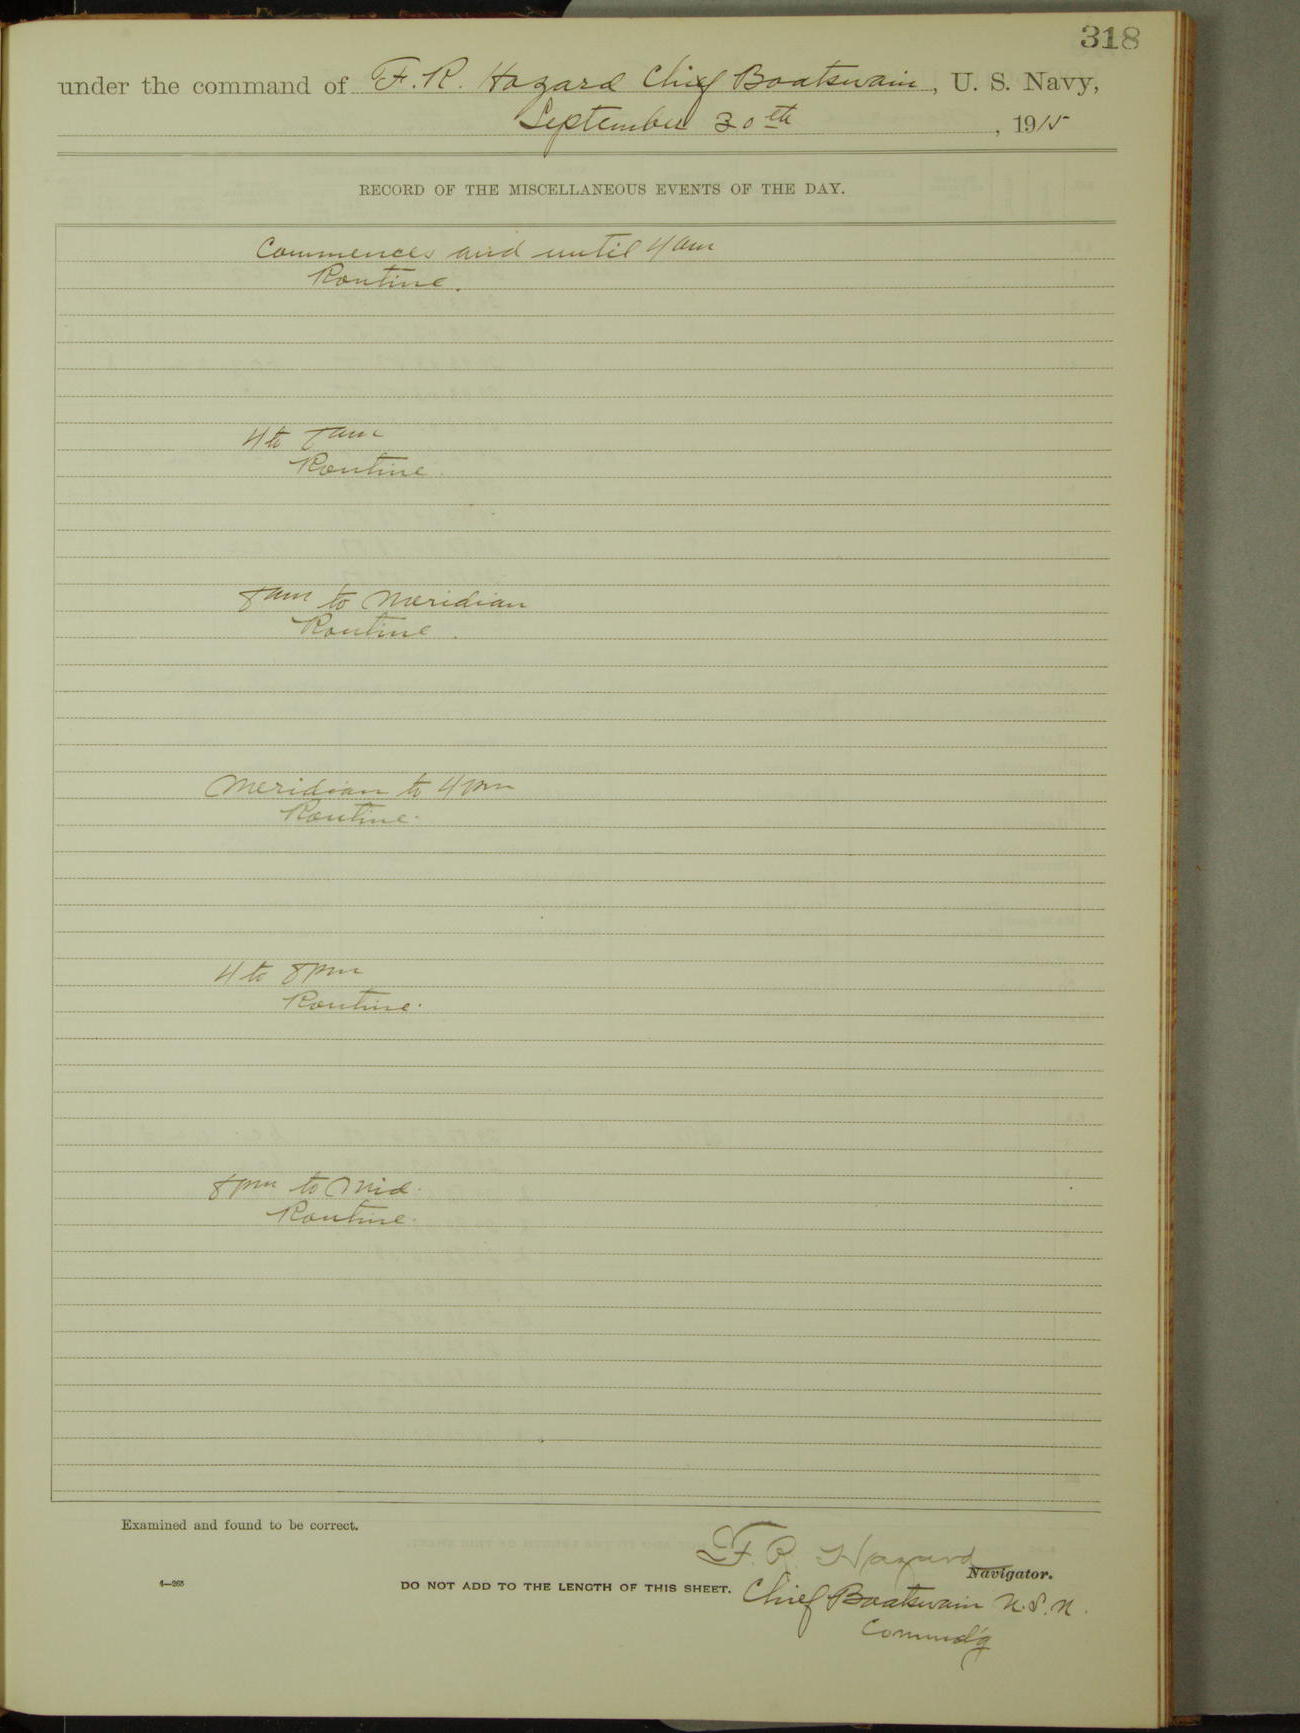 318
under the command of F. R. Hazard Chief Boatswain, U. S. Navy,
September 30th, 1915
RECORD OF THE MISCELLANEOUS EVENTS OF THE DAY.
Commences and until 4 am
Routine.
4 to 8 am
Routine.
8 am to Meridian
Routine.
Meridian to 4 pm
Routine.
4 to 8 pm
Routine.
8 pm to Mid.
Routine.
Examined and found to be correct.
F. R. Hazard
Navigator.
4—265
DO NOT ADD TO THE LENGTH OF THIS SHEET.
Chief Boatswain U.S.N.
Commd'g